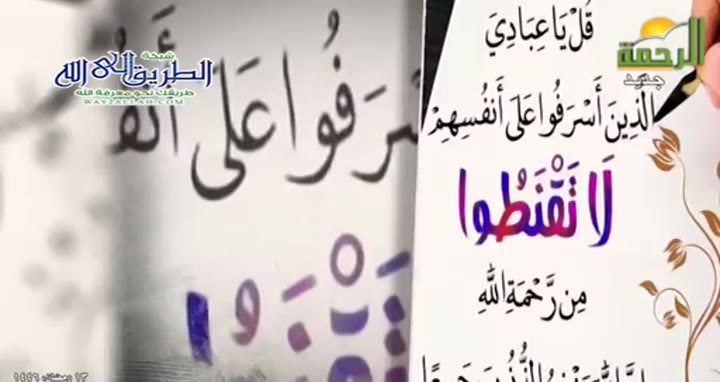 شبكة
الطريق إلى الله
طريقك نحو معرفة الله
WAY2ALLAH.COM
الرحمة
جديد
قُلْ يَا عِبَادِيَ
الَّذِينَ أَسْرَفُوا عَلَى أَنفُسِهِمْ
لَا تَقْنَطُوا
مِن رَّحْمَةِ اللَّهِ
سْرَفُوا عَلَى أَنفُ
١٣ رمضان ١٤٤٦